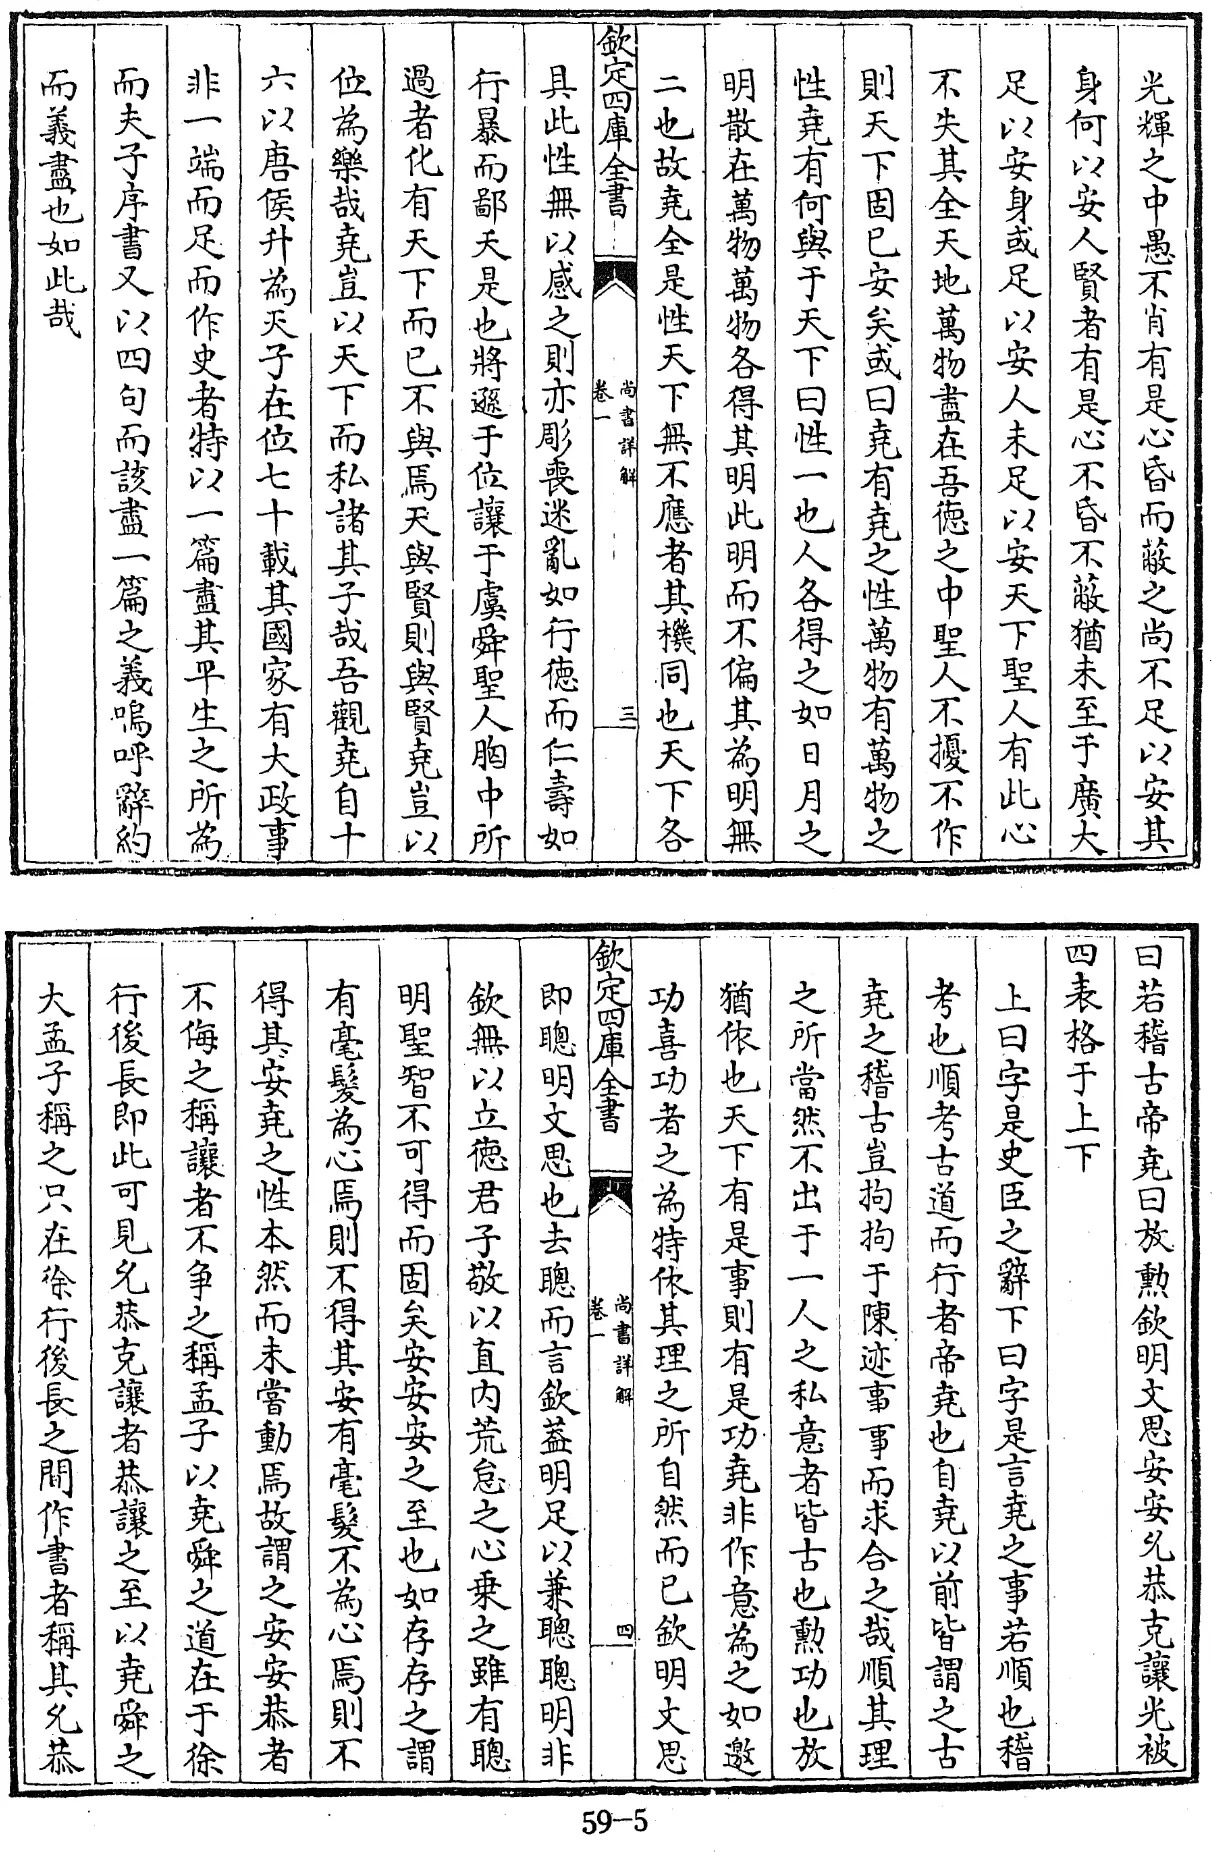 光輝之中愚不肖有是心昏而蔽之尚不足以安其
身何以安人賢者有是心不昏不蔽猶未至于廣大
足以安身或足以安人未足以安天下聖人有此心
不失其全天地萬物盡在吾徳之中聖人不擾不作
則天下固已安矣或曰堯有堯之性萬物有萬物之
性堯有何與于天下曰性一也人各得之如日月之
明散在萬物萬物各得其明此明而不偏其為明無
二也故堯全是性天下無不應者其機同也天下各
欽定四庫全書
尚書詳解
卷一
三
具此性無以感之則亦彫喪迷亂如行徳而仁壽如
行暴而鄙夭是也將遜于位讓于虞舜聖人胸中所
過者化有天下而已不與焉天與賢則與賢堯豈以
位為樂哉堯豈以天下而私諸其子哉吾觀堯自十
六以唐侯升為天子在位七十載其國家有大政事
非一端而足而作史者特以一篇盡其平生之所為
而夫子序書又以四句而該盡一篇之義嗚呼辭約
而義盡也如此哉
曰若稽古帝堯曰放勲欽明文思安安允恭克讓光被
四表格于上下
上曰字是史臣之辭下曰字是言堯之事若順也稽
考也順考古道而行者帝堯也自堯以前皆謂之古
堯之稽古豈拘拘于陳迹事事而求合之哉順其理
之所當然不出于一人之私意者皆古也勲功也放
猶依也天下有是事則有是功堯非作意為之如邀
功喜功者之為特依其理之所自然而已欽明文思
欽定四庫全書
尚書詳解
卷一
四
即聰明文思也去聰而言欽葢明足以兼聰聰明非
欽無以立徳君子敬以直内荒怠之心乗之雖有聰
明聖智不可得而固矣安安安之至也如存存之謂
有毫髮為心焉則不得其安有毫髮不為心焉則不
得其安堯之性本然而未嘗動焉故謂之安安恭者
不侮之稱讓者不争之稱孟子以堯舜之道在于徐
行後長即此可見允恭克讓者恭讓之至以堯舜之
大孟子稱之只在徐行後長之間作書者稱其允恭
59-5